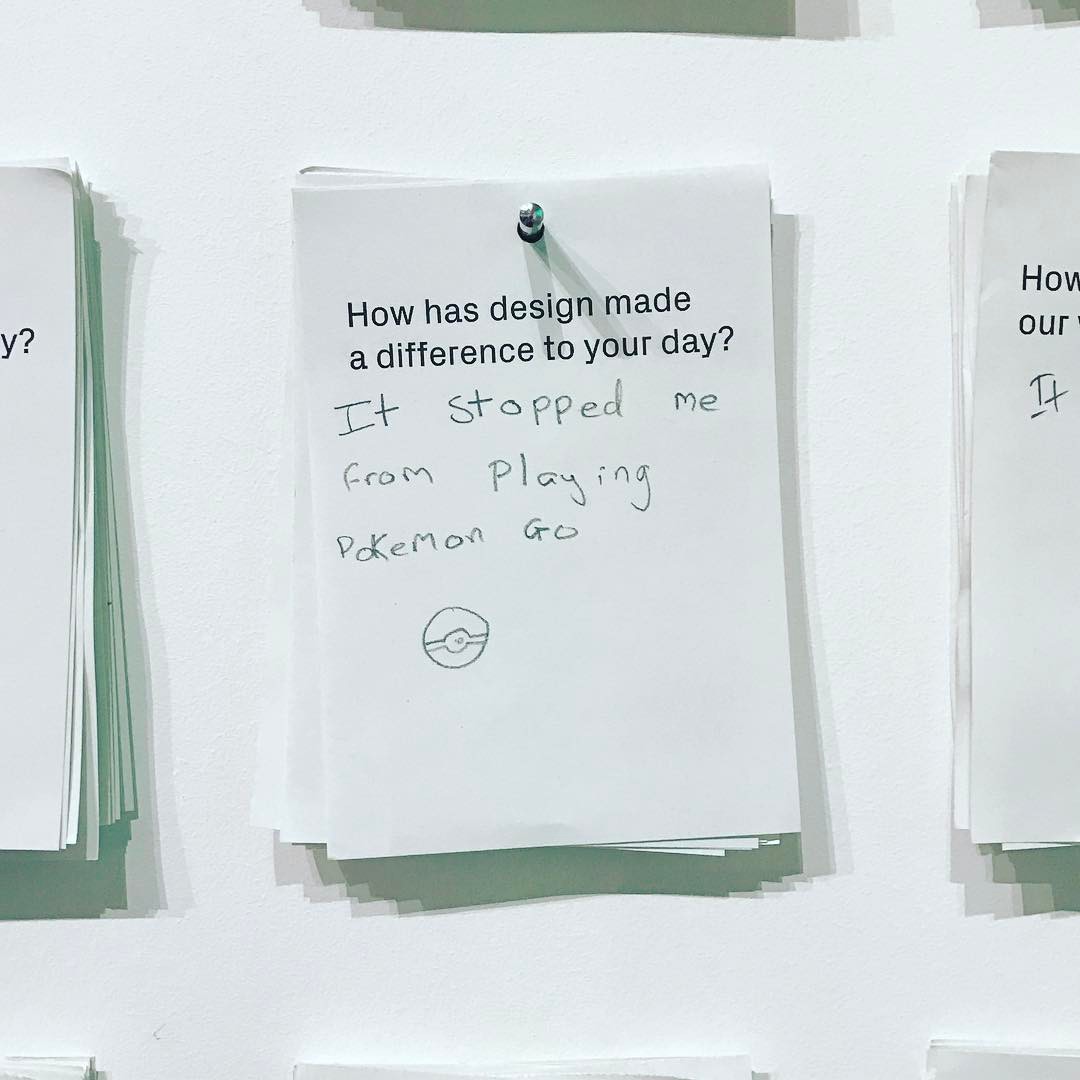 y?
How has design made
a difference to your day?
It stopped me
From Playing
Pokemon Go
How
our
It